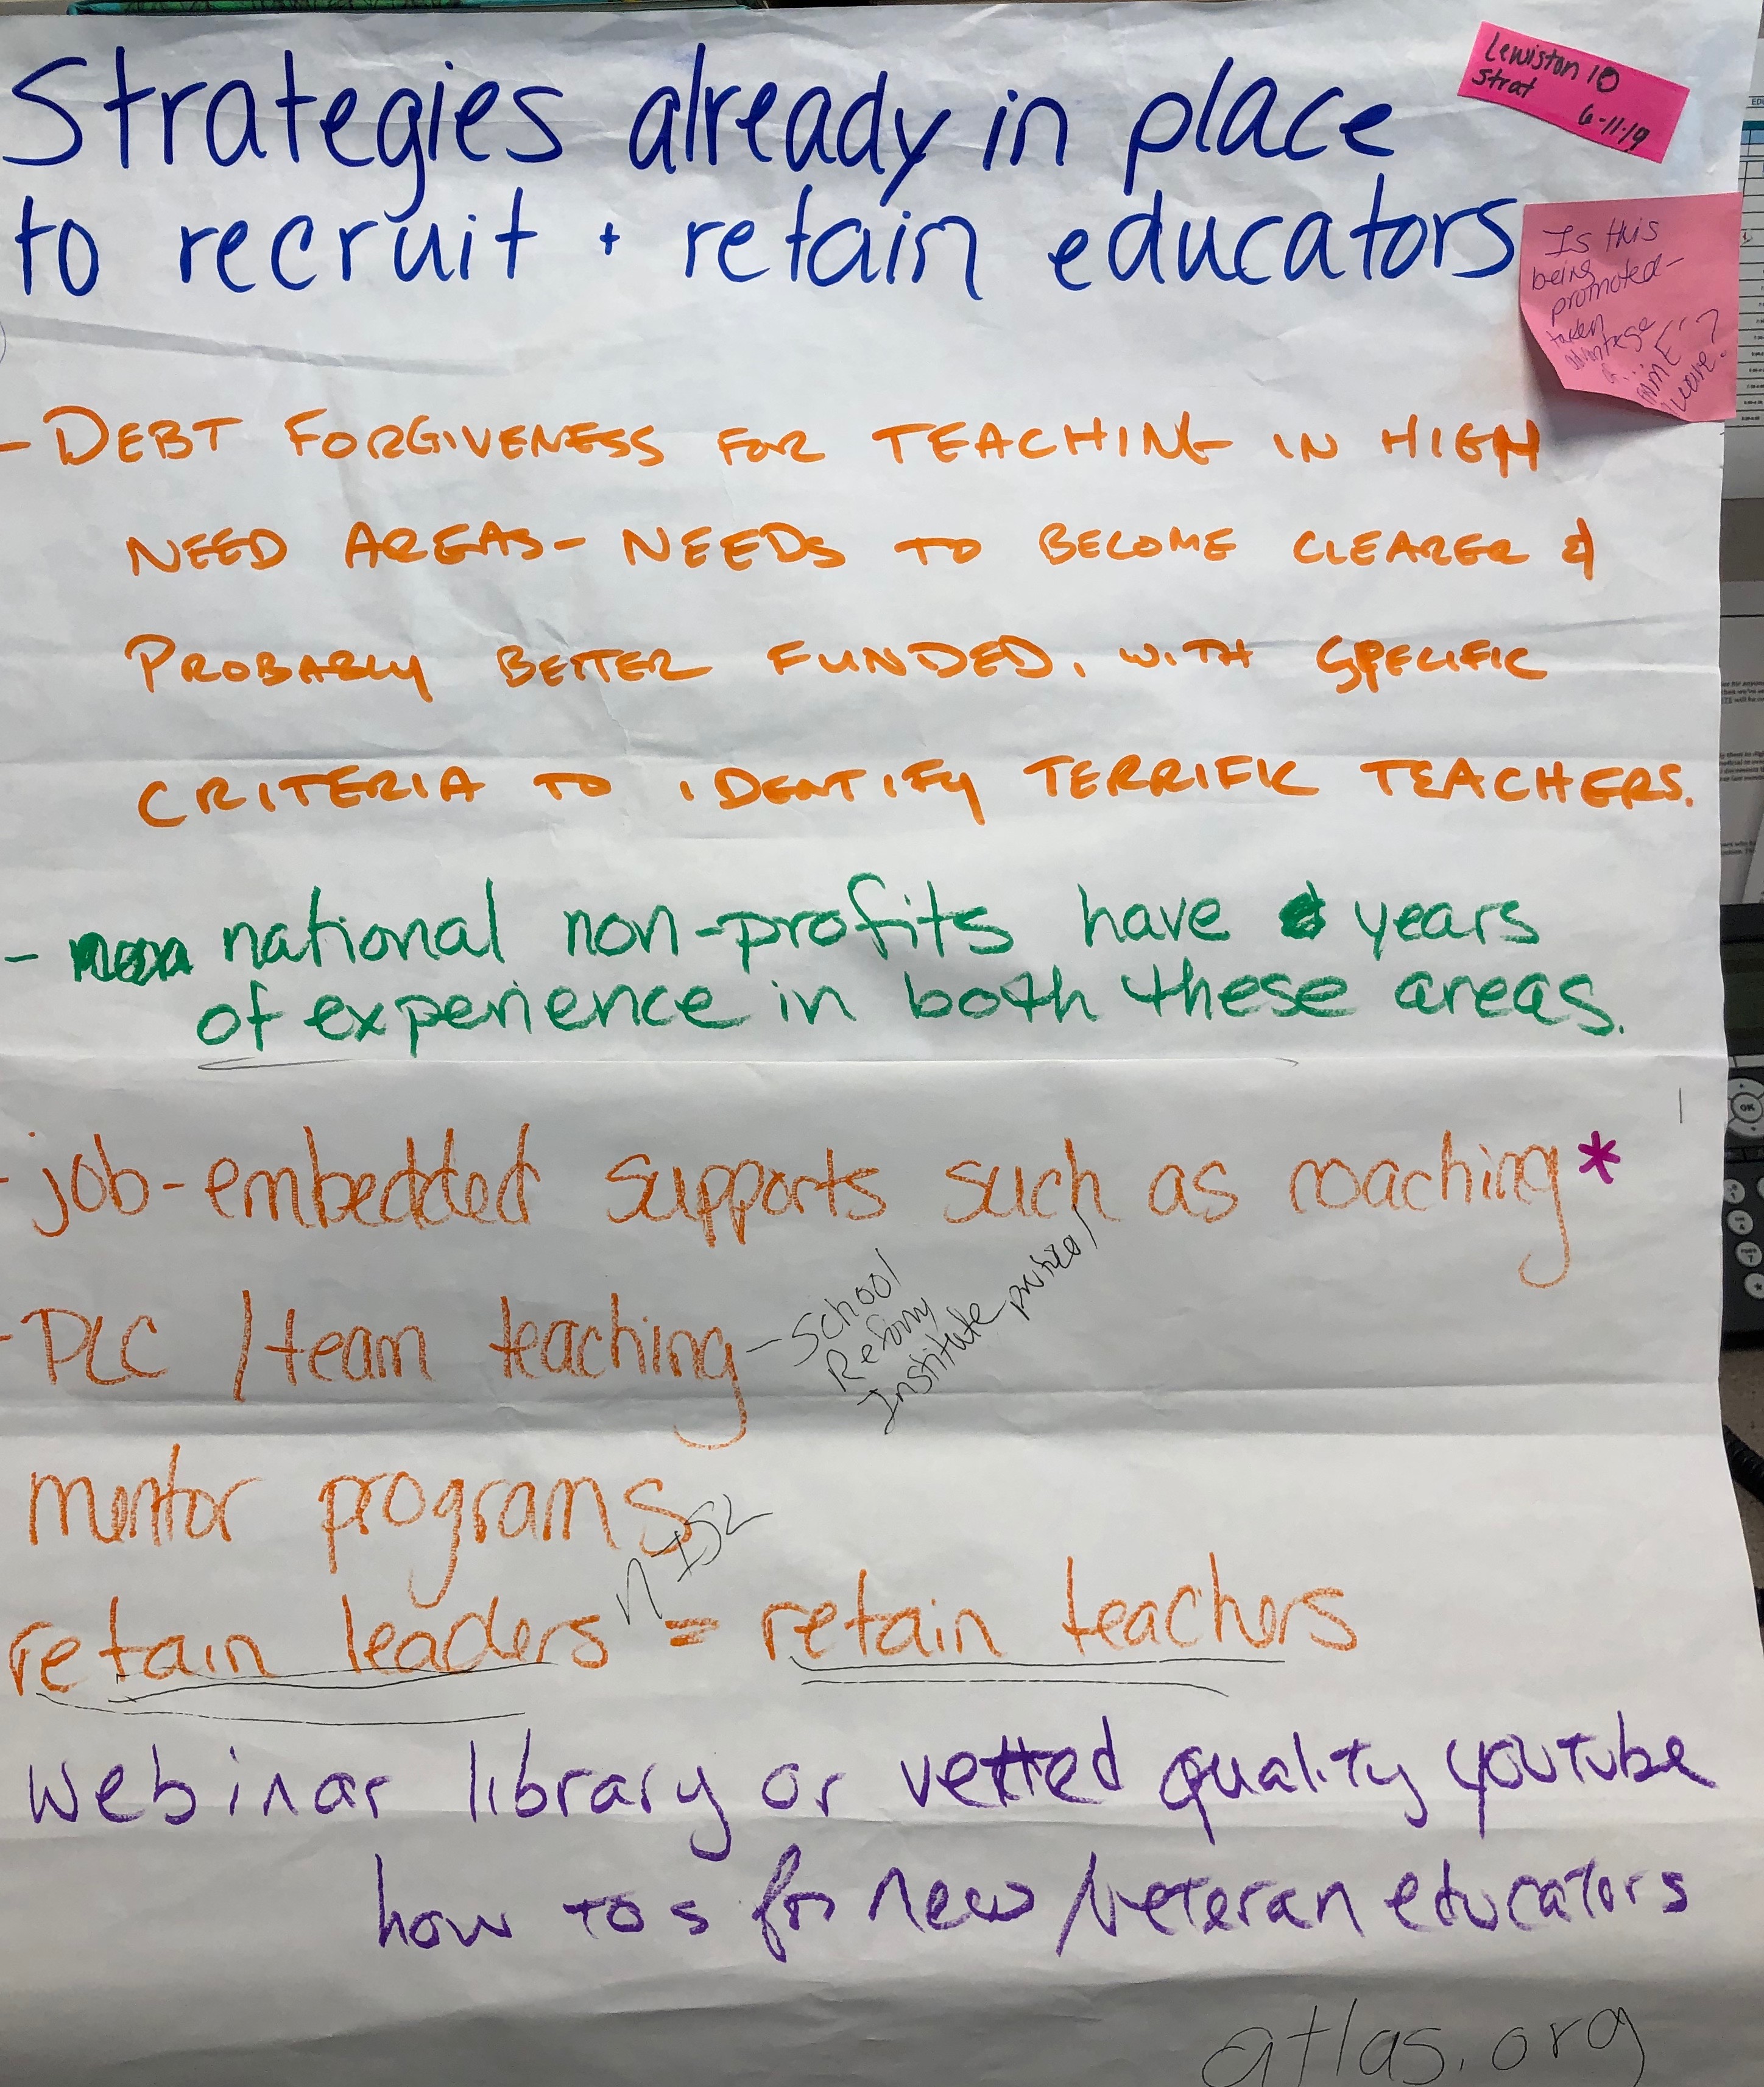 Strategies already in place
to recruit + retain educators
Lewiston 10
Strat
6-11-19
Is this
being
promoted -
taken
advantage
of...
- DEBT FORGIVENESS FOR TEACHING IN HIGH
NEED AREAS - NEEDS TO BECOME CLEARER &
PROBABLY BETTER FUNDED, WITH SPECIFIC
CRITERIA TO IDENTIFY TERRIFIC TEACHERS.
- national non-profits have years
of experience in both these areas.
- job-embedded supports such as coaching *
- PLC / team teaching - School
Reform
Institute
mentor programs
retain leaders = retain teachers
webinar library or vetted quality youtube
how tos for new / veteran educators
atlas.org